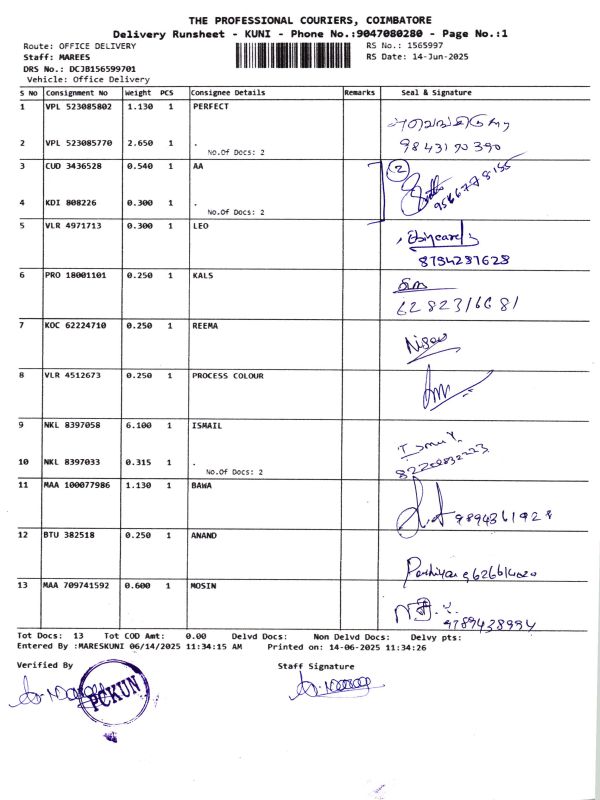 THE PROFESSIONAL COURIERS, COIMBATORE
Delivery Runsheet - KUNI - Phone No.:9047080280 - Page No.:1
Route: OFFICE DELIVERY RS No.: 1565997
Staff: MAREES RS Date: 14-Jun-2025
DRS No.: DCJB156599701
Vehicle: Office Delivery
S No Consignment No Weight PCS Consignee Details Remarks Seal & Signature
1 VPL 523085802 1.130 1 PERFECT
2 VPL 523085770 2.650 1 . 9843190390
No.Of Docs: 2
3 CUD 3436528 0.540 1 AA 2
4 KDI 808226 0.300 1 .
No.Of Docs: 2
5 VLR 4971713 0.300 1 LEO
8754287628
6 PRO 18001101 0.250 1 KALS
6282316681
7 KOC 62224710 0.250 1 REEMA
8 VLR 4512673 0.250 1 PROCESS COLOUR
9 NKL 8397058 6.100 1 ISMAIL
10 NKL 8397033 0.315 1 .
No.Of Docs: 2
11 MAA 100077986 1.130 1 BAWA
9894361928
12 BTU 382518 0.250 1 ANAND
13 MAA 709741592 0.600 1 MOSIN
9789438994
Tot Docs: 13 Tot COD Amt: 0.00 Delvd Docs: Non Delvd Docs: Delvy pts:
Entered By :MARESKUNI 06/14/2025 11:34:15 AM Printed on: 14-06-2025 11:34:26
Verified By Staff Signature
PCKUN